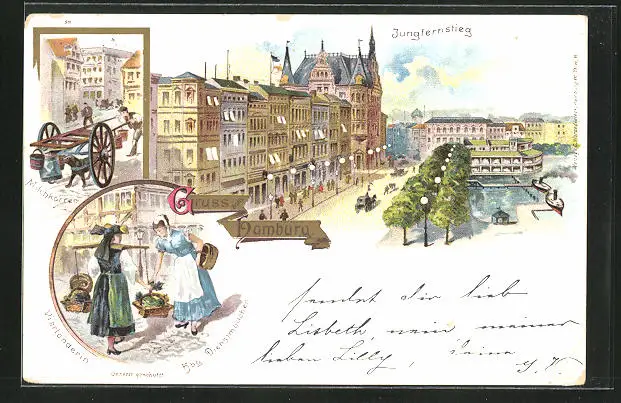 Jungfernstieg
Milchkarren
Gruss aus
Hamburg
Vierländerin
Hbg. Dienstmädchen
Gesetzl. geschützt
sendet dir lieb
Lisbeth, nein meiner
lieben Lilly, deine